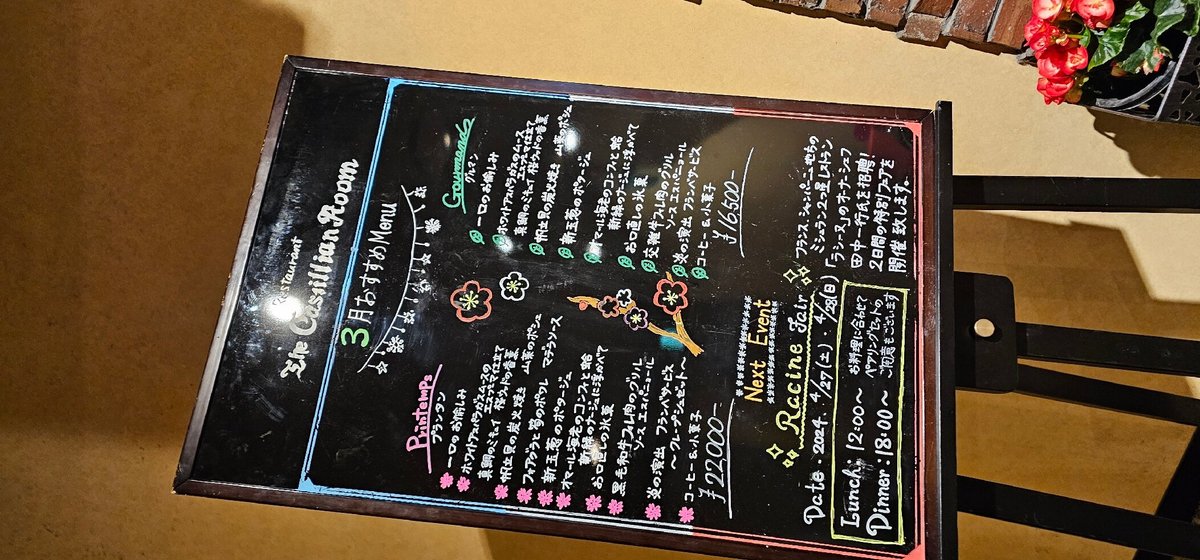 Restaurant
The Castillian Room
3月おすすめMenu
Printemps
プランタン
一口のお愉しみ
ホワイトアスパラガスのムース
真鯛のミキュイ エスプーマ仕立て
桜ウッドの香薫
帆立貝の炭火焼き 山菜のポシェ
フォアグラと筍のポワレ マデラソース
新玉葱のポタージュ
オマール海老のコンフィと蛤
新緑のナージュに浮かべて
お口直しの氷菓
黒毛和牛フィレ肉のグリル
ソースエスパニョール
炎の演出 フランベサービス
〜クレープシュゼット〜
コーヒー&小菓子
¥22000-
Gourmand
グルマン
一口のお愉しみ
ホワイトアスパラガスのムース
真鯛のミキュイ エスプーマ仕立て
桜ウッドの香薫
帆立貝の炭火焼き 山菜のポシェ
新玉葱のポタージュ
オマール海老のコンフィと蛤
新緑のナージュに浮かべて
お口直しの氷菓
交雑牛フィレ肉のグリル
ソースエスパニョール
炎の演出 フランベサービス
コーヒー&小菓子
¥16,500-
Next Event
Racine Fair
Date. 2024. 4/27(土). 4/28(日)
Lunch: 12:00〜
Dinner: 18:00〜
お料理に合わせて
ペアリングセットの
ご用意もございます
フランス シャンパーニュ地方の
ミシュラン2つ星レストラン
「ラシーヌ」のオーナーシェフ
田中一行氏を招聘!
2日間の特別フェアを
開催致します。